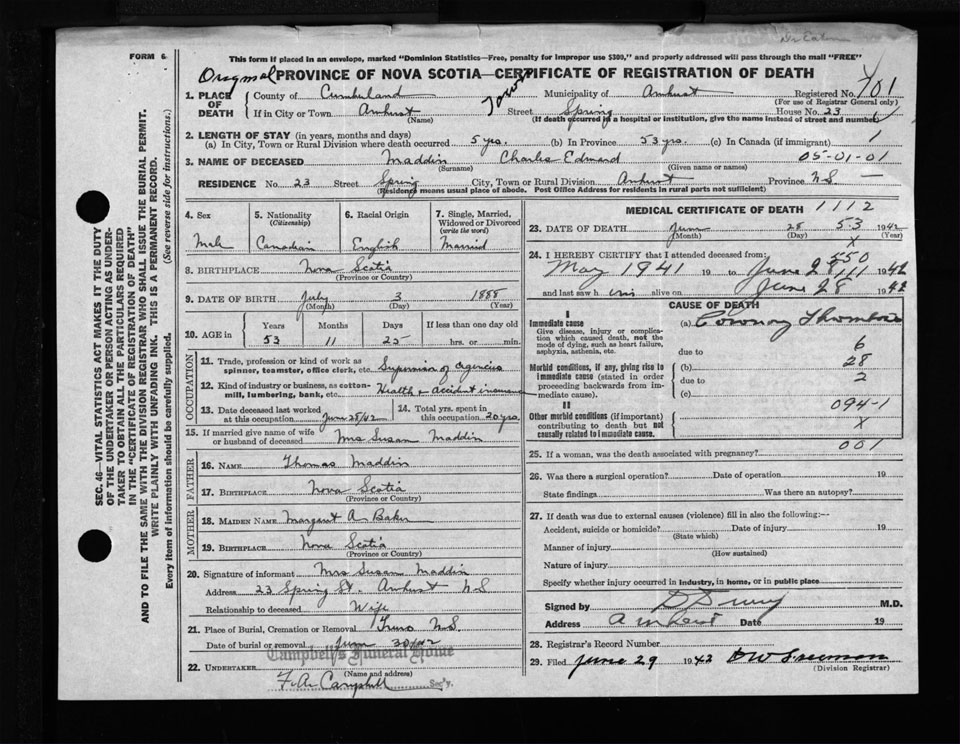 Dr Eaton
FORM 6
This form if placed in an envelope, marked "Dominion Statistics—Free, penalty for improper use $300," and properly addressed will pass through the mail "FREE"
Original PROVINCE OF NOVA SCOTIA—CERTIFICATE OF REGISTRATION OF DEATH
1. PLACE OF DEATH County of Cumberland Municipality of Amherst Registered No. 701
(For use of Registrar General only)
If in City or Town Amherst Town Street Spring House No. 23
(Name) (If death occurred in a hospital or institution, give the name instead of street and number)
2. LENGTH OF STAY (in years, months and days)
(a) In City, Town or Rural Division where death occurred 5 yrs. (b) In Province 53 yrs. (c) In Canada (if immigrant) 1
3. NAME OF DECEASED Maddin Charles Edmond 05-01-01
(Surname) (Given name or names)
RESIDENCE No. 23 Street Spring City, Town or Rural Division Amherst Province N.S. —
(Residence means usual place of abode. Post Office Address for residents in rural parts not sufficient)
4. Sex Male
5. Nationality (Citizenship) Canadian
6. Racial Origin English
7. Single, Married, Widowed or Divorced (write the word) Married
8. BIRTHPLACE Nova Scotia
(Province or Country)
9. DATE OF BIRTH July 3 1888
(Month) (Day) (Year)
10. AGE in Years Months Days If less than one day old
53 11 25 hrs. or min.
OCCUPATION
11. Trade, profession or kind of work as spinner, teamster, office clerk, etc. Supervisor of Agencies
12. Kind of industry or business, as cotton-mill, lumbering, bank, etc. Health & accident insurance
13. Date deceased last worked at this occupation June 28/42
14. Total yrs. spent in this occupation 20 yrs.
15. If married give name of wife or husband of deceased Mrs Susan Maddin
FATHER
16. NAME Thomas Maddin
17. BIRTHPLACE Nova Scotia
(Province or Country)
MOTHER
18. MAIDEN NAME Margaret A Baker
19. BIRTHPLACE Nova Scotia
(Province or Country)
20. Signature of informant Mrs Susan Maddin
Address 23 Spring St. Amherst N S
Relationship to deceased Wife
21. Place of Burial, Cremation or Removal Truro N.S.
Date of burial or removal June 30/42
Campbell's Funeral Home
22. UNDERTAKER F. A. Campbell
(Name and address)
Sec'y.
MEDICAL CERTIFICATE OF DEATH 1112
23. DATE OF DEATH June 28 53 1942
(Month) (Day) X (Year)
24. I HEREBY CERTIFY that I attended deceased from: 550
May 1941 19 to June 28 111 1942
and last saw h im alive on June 28 1942
CAUSE OF DEATH
I
Immediate cause
Give disease, injury or complication which caused death, not the mode of dying, such as heart failure, asphyxia, asthenia, etc.
(a) Coronary Thrombosis
due to 6
Morbid conditions, if any, giving rise to immediate cause (stated in order proceeding backwards from immediate cause).
(b) 28
due to 2
(c)
II
Other morbid conditions (if important) contributing to death but not causally related to immediate cause.
094-1
X
25. If a woman, was the death associated with pregnancy? 001
26. Was there a surgical operation? Date of operation 19
State findings Was there an autopsy?
27. If death was due to external causes (violence) fill in also the following:—
Accident, suicide or homicide? Date of injury 19
(State which)
Manner of injury
(How sustained)
Nature of injury
Specify whether injury occurred in industry, in home, or in public place
Signed by M.D.
Address Amherst Date 19
28. Registrar's Record Number
29. Filed June 29 1942
(Division Registrar)
SEC. 46—VITAL STATISTICS ACT MAKES IT THE DUTY OF THE UNDERTAKER OR PERSON ACTING AS UNDERTAKER TO OBTAIN ALL THE PARTICULARS REQUIRED IN THE "CERTIFICATE OF REGISTRATION OF DEATH" AND TO FILE THE SAME WITH THE DIVISION REGISTRAR WHO SHALL ISSUE THE BURIAL PERMIT.
WRITE PLAINLY WITH UNFADING INK. THIS IS A PERMANENT RECORD.
Every item of information should be carefully supplied. (See reverse side for instructions.)